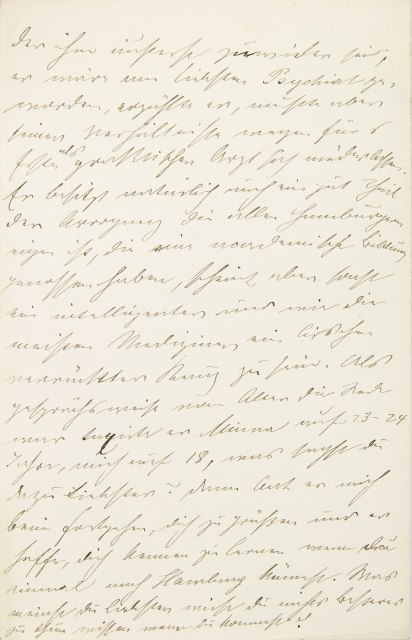 der ihm äusserst zuwider sei,
er wäre am liebsten Psychiater ge-
worden, erzählte er, musste aber
seiner Verhältnisse wegen für's
Erste als praktischer Arzt sich niederlassen.
Er besitzt natürlich auch ein gut Theil
der Arroganz die allen Hamburgern
eigen ist, die eine academische Bildung
genossen haben, scheint aber sonst
ein intelligenter und wie die
meisten Mediziner ein bisschen
verrückter Kauz zu sein. Als
gesprächsweise vom Alter die Rede
war taxirte er Minna auf 23-24
Jahre, mich auf 18, was sagst du
dazu Liebster? Dann bat er mich
beim fortgehen, dich zu grüßen und er
hoffe, dich kennen zu lernen wenn Du
einmal nach Hamburg kämest. Was
meinst du Liebster wirst du nichts besseres
zu thun wissen wenn du kommst?